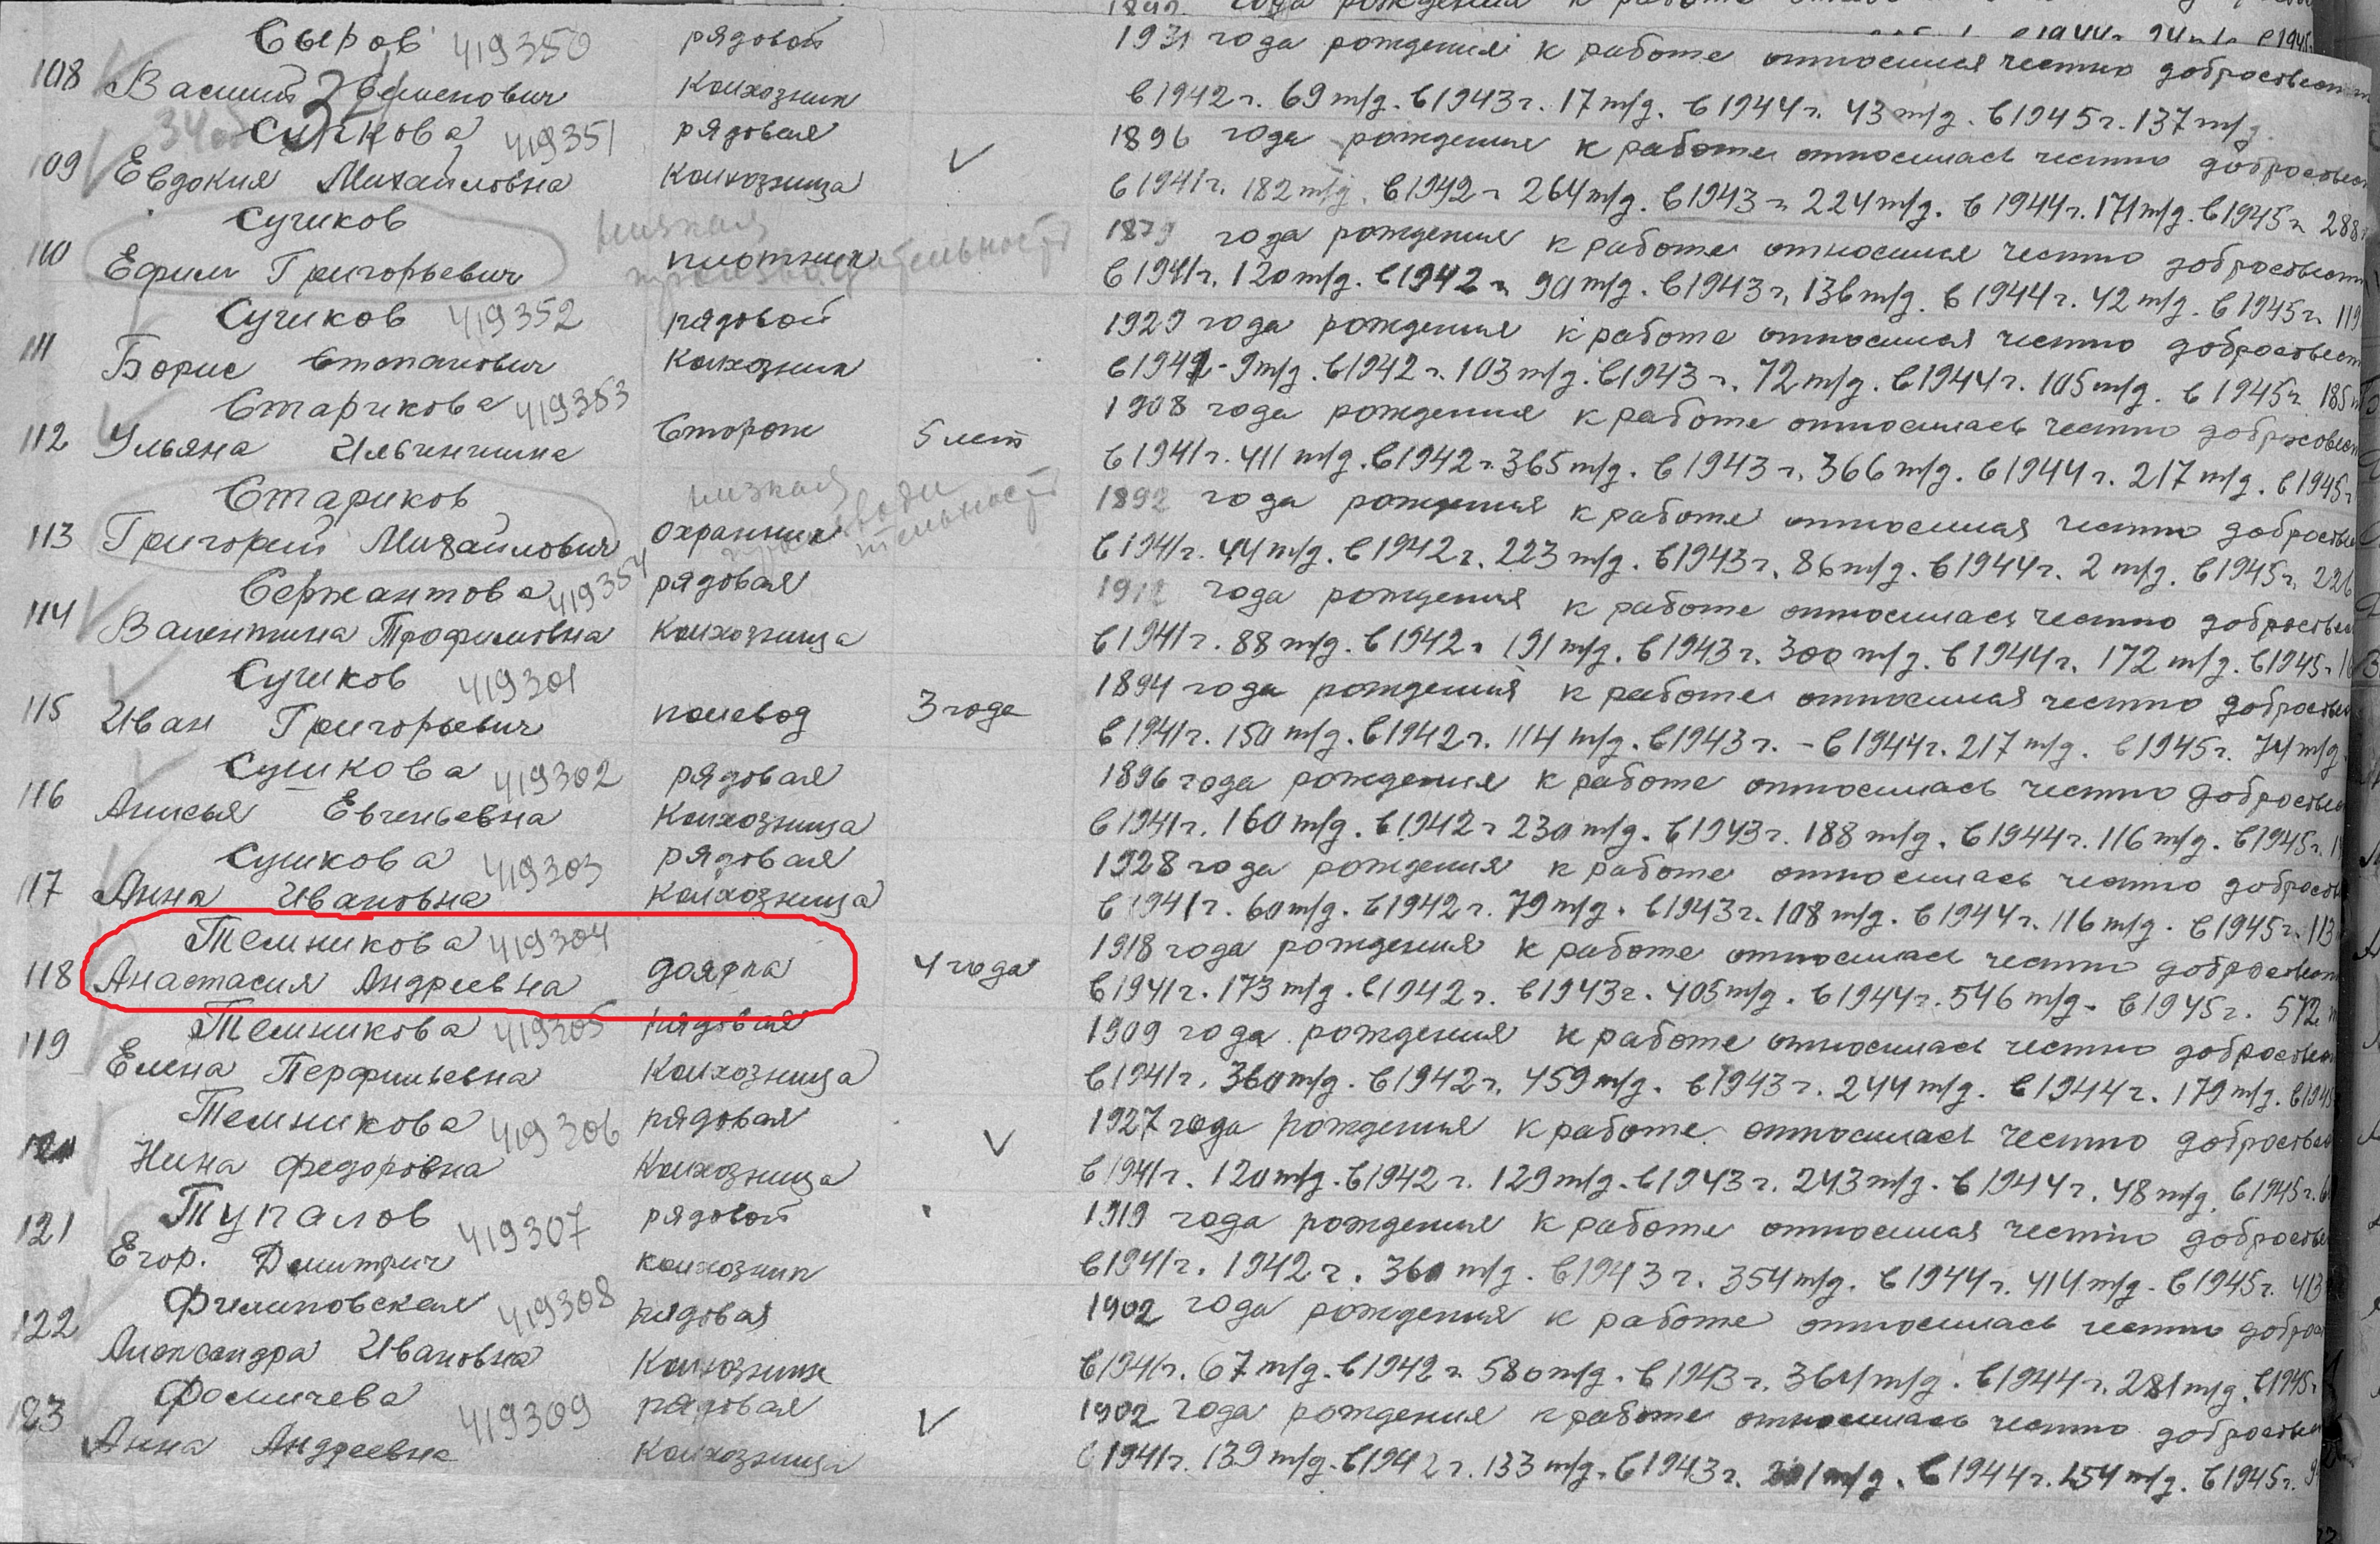 Сыров 419350 рядовой 1931 года рождения к работе относился честно добросовестн
108 Василий Семенович колхозник в 1942 г. 69 т/д. в 1943 г. 17 т/д. в 1944 г. 43 т/д. в 1945 г. 137 т/д.
Сучкова 419351 рядовая 1896 года рождения к работе относилась честно добросовес
109 Евдокия Михайловна колхозница в 1941 г. 182 т/д. в 1942 г. 264 т/д. в 1943 г. 224 т/д. в 1944 г. 171 т/д. в 1945 г. 288
Сучков низкая 1879 года рождения к работе относился честно добросовестн
110 Ефим Григорьевич плотник производительность в 1941 г. 120 т/д. в 1942 г. 90 т/д. в 1943 г. 136 т/д. в 1944 г. 42 т/д. в 1945 г. 119
Сучков 419352 рядовой 1929 года рождения к работе относился честно добросовестн
111 Борис Степанович колхозник в 1941 - 9 т/д. в 1942 г. 103 т/д. в 1943 г. 72 т/д. в 1944 г. 105 т/д. в 1945 г. 185
Старикова 419353 1908 года рождения к работе относилась честно добросовест
112 Ульяна Ильинишна Сторож 5 лет в 1941 г. 411 т/д. в 1942 г. 365 т/д. в 1943 г. 366 т/д. в 1944 г. 217 т/д. в 1945 г.
Стариков низкая 1892 года рождения к работе относился честно добросовес
113 Григорий Михайлович охранник производительность в 1941 г. 44 т/д. в 1942 г. 223 т/д. в 1943 г. 86 т/д. в 1944 г. 2 т/д. в 1945 г. 226
Сержантова 419354 рядовая 1912 года рождения к работе относилась честно добросовес
114 Валентина Трофимовна колхозница в 1941 г. 88 т/д. в 1942 г. 191 т/д. в 1943 г. 300 т/д. в 1944 г. 172 т/д. в 1945 г.
Сучков 419301 1894 года рождения к работе относился честно добросовес
115 Иван Григорьевич полевод 3 года в 1941 г. 150 т/д. в 1942 г. 114 т/д. в 1943 г. - в 1944 г. 217 т/д. в 1945 г. 74 т/д.
Сушкова 419302 рядовая 1896 года рождения к работе относилась честно добросовес
116 Анисья Евгеньевна колхозница в 1941 г. 160 т/д. в 1942 г. 230 т/д. в 1943 г. 188 т/д. в 1944 г. 116 т/д. в 1945 г.
Сушкова 419303 рядовая 1928 года рождения к работе относилась честно добросов
117 Анна Ивановна колхозница в 1941 г. 60 т/д. в 1942 г. 79 т/д. в 1943 г. 108 т/д. в 1944 г. 116 т/д. в 1945 г. 113
Темникова 419304 1918 года рождения к работе относилась честно добросовест
118 Анастасия Андреевна доярка 4 года в 1941 г. 173 т/д. в 1942 г. в 1943 г. 405 т/д. в 1944 г. 546 т/д. в 1945 г. 572
Темникова 419305 рядовая 1909 года рождения к работе относилась честно добросовес
119 Елена Перфильевна колхозница в 1941 г. 360 т/д. в 1942 г. 459 т/д. в 1943 г. 244 т/д. в 1944 г. 179 т/д. в 1945
Темникова 419306 рядовая 1927 года рождения к работе относилась честно добросовес
120 Нина Федоровна колхозница в 1941 г. 120 т/д. в 1942 г. 129 т/д. в 1943 г. 243 т/д. в 1944 г. 48 т/д. в 1945 г.
Тупалов 419307 рядовой 1919 года рождения к работе относился честно добросове
121 Егор. Дмитрич колхозник в 1941 г. 1942 г. 360 т/д. в 1943 г. 354 т/д. в 1944 г. 414 т/д. в 1945 г. 413
Филиповская 419308 рядовая 1902 года рождения к работе относилась честно доброс
122 Александра Ивановна колхозник в 1941 г. 67 т/д. в 1942 г. 580 т/д. в 1943 г. 364 т/д. в 1944 г. 281 т/д. в 1945 г.
Фомичева 419309 рядовая 1902 года рождения к работе относилась честно добросовес
123 Анна Андреевна колхозница в 1941 г. 139 т/д. в 1942 г. 133 т/д. в 1943 г. 201 т/д. в 1944 г. 154 т/д. в 1945 г.